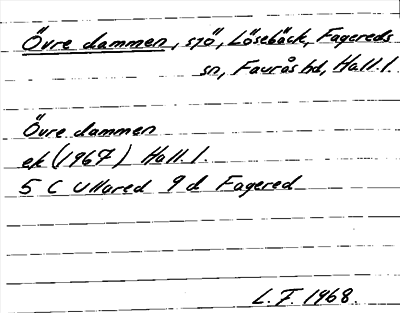 Övre dammen, sjö, Lösebäck, Fagereds
sn, Faurås hd, Hall. l.
Övre dammen
ek (1967) Hall. l.
5 C Ullared 9 d Fagered
L. F. 1968.